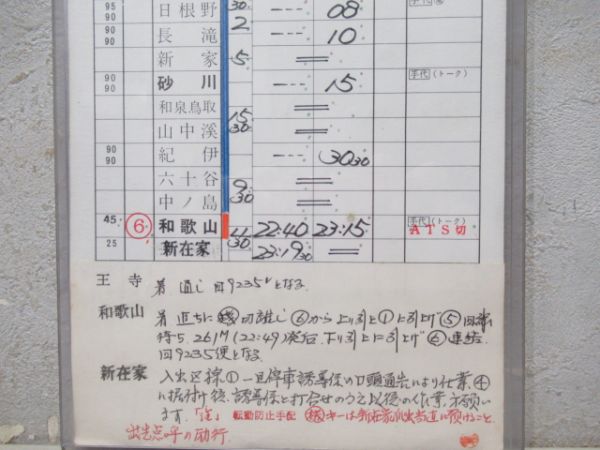 95 90 日根野 30 08
90 90 長滝 2 --- 10
新家 5
90 90 砂川 --- 15 手代(トーク)
和泉鳥取
山中渓 15 30
90 90 紀伊 --- 30 30
六十谷
中ノ島 9 30
45 ⑥ 和歌山 22:40 23:15 手代(トーク) ATS切
25 新在家 4 30 23:19 30
王寺 着 通し 回9235となる
和歌山 着 直ちに 切離し ⑥から上り引上と①に引上げ⑤
待ち. 261M(22:49)発后. 下り引上に引上げ⑥連結.
回9235便となる
新在家 入出区線① 一旦停車誘導係の口頭通告により仕業. ④
に据付け後. 誘導係と打合せのうえ以後の作業方願い
ます. 「注」 転動防止手配 キーは新在家派出当直に預けること.
出先点呼の励行.